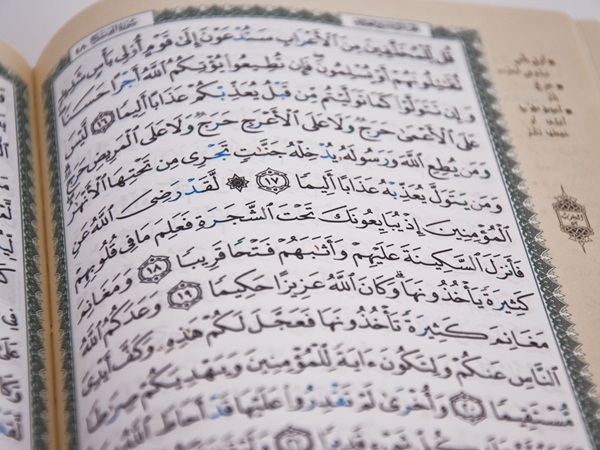 قُل لِّلْمُخَلَّفِينَ مِنَ الْأَعْرَابِ سَتُدْعَوْنَ إِلَىٰ قَوْمٍ أُولِي بَأْسٍ شَدِيدٍ
تُقَاتِلُونَهُمْ أَوْ يُسْلِمُونَ فَإِن تُطِيعُوا يُؤْتِكُمُ اللَّهُ أَجْرًا حَسَنًا
وَإِن تَتَوَلَّوْا كَمَا تَوَلَّيْتُم مِّن قَبْلُ يُعَذِّبْكُمْ عَذَابًا أَلِيمًا ١٦ لَّيْسَ
عَلَى الْأَعْمَىٰ حَرَجٌ وَلَا عَلَى الْأَعْرَجِ حَرَجٌ وَلَا عَلَى الْمَرِيضِ حَرَجٌ
وَمَن يُطِعِ اللَّهَ وَرَسُولَهُ يُدْخِلْهُ جَنَّاتٍ تَجْرِي مِن تَحْتِهَا الْأَنْهَارُ
وَمَن يَتَوَلَّ يُعَذِّبْهُ عَذَابًا أَلِيمًا ١٧ ۞ لَّقَدْ رَضِيَ اللَّهُ عَنِ
الْمُؤْمِنِينَ إِذْ يُبَايِعُونَكَ تَحْتَ الشَّجَرَةِ فَعَلِمَ مَا فِي قُلُوبِهِمْ
فَأَنزَلَ السَّكِينَةَ عَلَيْهِمْ وَأَثَابَهُمْ فَتْحًا قَرِيبًا ١٨ وَمَغَانِمَ
كَثِيرَةً يَأْخُذُونَهَا وَكَانَ اللَّهُ عَزِيزًا حَكِيمًا ١٩ وَعَدَكُمُ اللَّهُ
مَغَانِمَ كَثِيرَةً تَأْخُذُونَهَا فَعَجَّلَ لَكُمْ هَٰذِهِ وَكَفَّ أَيْدِيَ
النَّاسِ عَنكُمْ وَلِتَكُونَ ءَايَةً لِّلْمُؤْمِنِينَ وَيَهْدِيَكُمْ صِرَاطًا
مُّسْتَقِيمًا ٢٠ وَأُخْرَىٰ لَمْ تَقْدِرُوا عَلَيْهَا قَدْ أَحَاطَ اللَّهُ